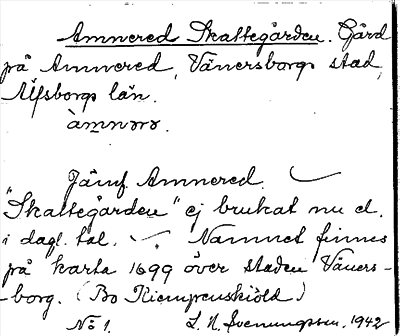 Amnered Skattegården. Gård
på Amnered, Vänersborgs stad,
Älfsborgs län.
Jämf. Amnered.
"Skattegården" ej brukat nu el.
i dagl. tal. Namnet finnes
på karta 1699 över staden Väners-
-borg. (Bo Kiemprenskiöld)
No 1. L. N. Svenungsson. 1942